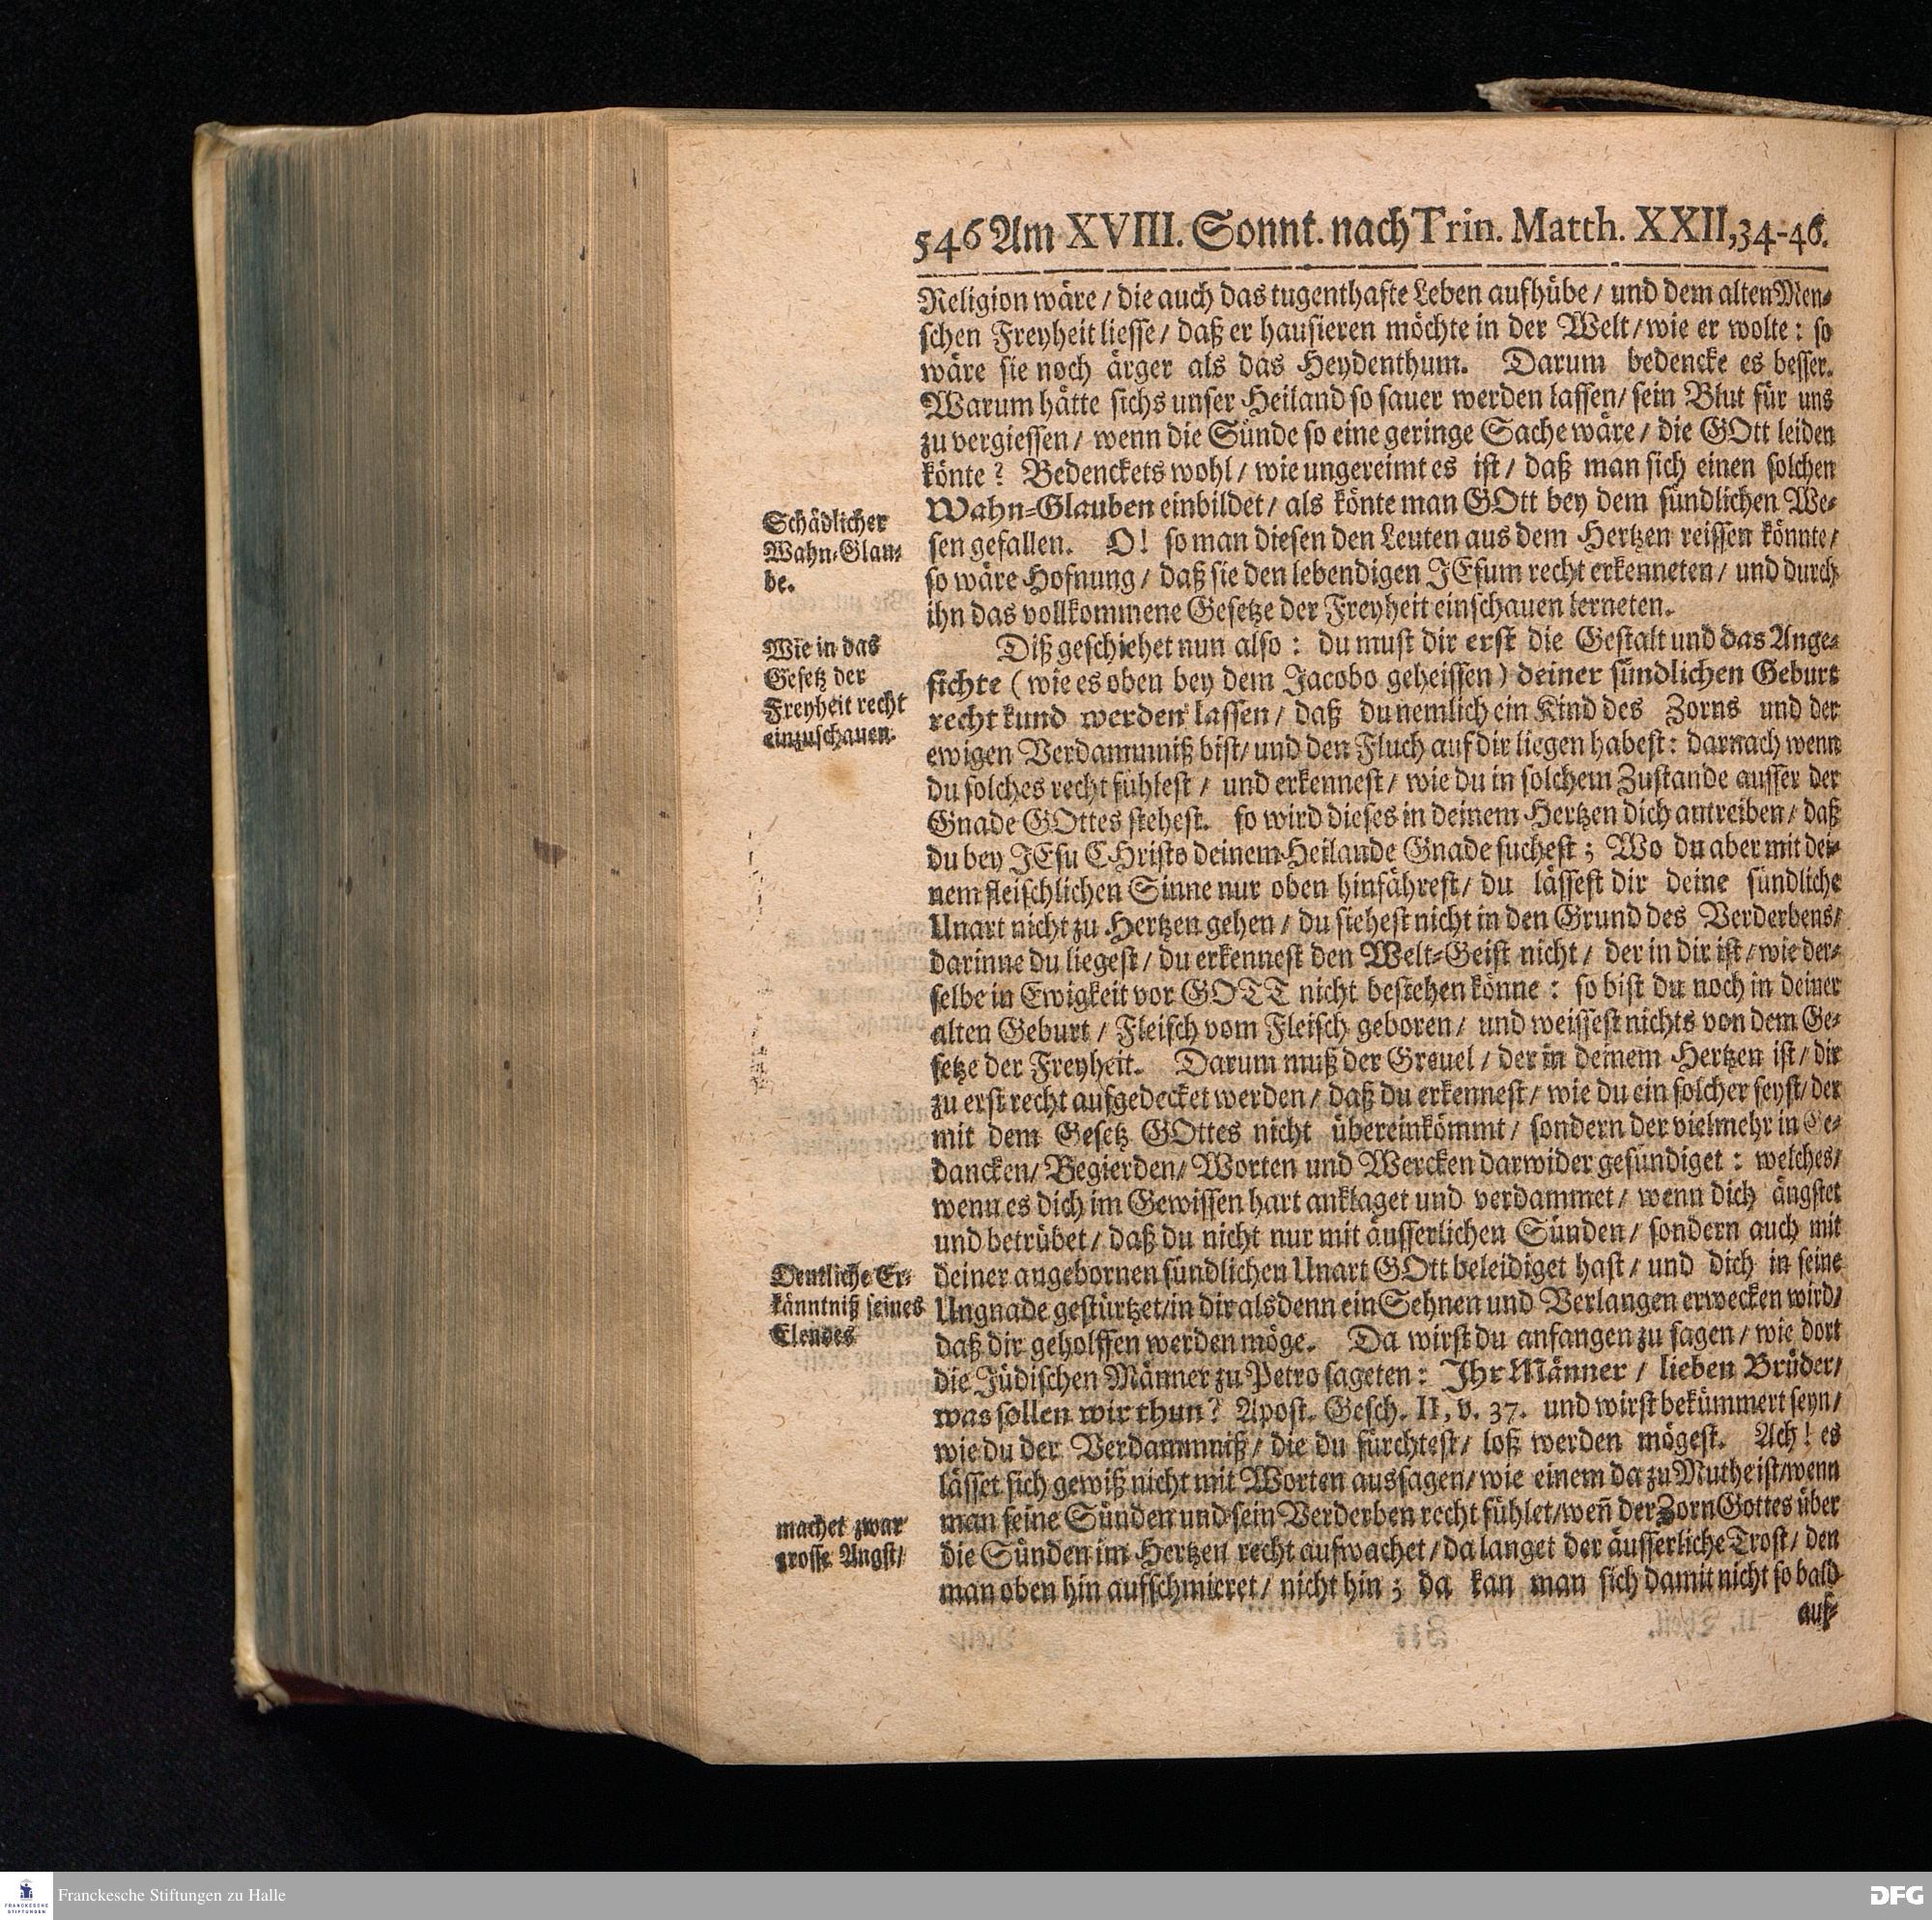 546 Am XVIII. Sonnt. nach Trin. Matth. XXII, 34-46.
Religion wäre / die auch das tugenthafte Leben aufhübe / und dem alten Men-
schen Freyheit liesse / daß er hausieren möchte in der Welt / wie er wolte: so
wäre sie noch ärger als das Heydenthum. Darum bedencke es besser.
Warum hätte sichs unser Heiland so sauer werden lassen / sein Blut für uns
zu vergiessen / wenn die Sünde so eine geringe Sache wäre / die GOtt leiden
könte? Bedenckets wohl / wie ungereimt es ist / daß man sich einen solchen
Wahn-Glauben einbildet / als könte man GOtt bey dem sündlichen We-
sen gefallen. O! so man diesen den Leuten aus dem Hertzen reissen könnte /
so wäre Hofnung / daß sie den lebendigen JEsum recht erkenneten / und durch
ihn das vollkommene Gesetze der Freyheit einschauen lerneten.
Schädlicher
Wahn-Glau-
be.
Diß geschiehet nun also: du must dir erst die Gestalt und das Ange-
sichte (wie es oben bey dem Jacobo geheissen) deiner sündlichen Geburt
recht kund werden lassen / daß du nemlich ein Kind des Zorns und der
ewigen Verdammniß bist / und den Fluch auf dir liegen habest: darnach wenn
du solches recht fühlest / und erkennest / wie du in solchem Zustande ausser der
Gnade GOttes stehest. so wird dieses in deinem Hertzen dich antreiben / daß
du bey JEsu CHristo deinem Heilande Gnade suchest; Wo du aber mit dei-
nem fleischlichen Sinne nur oben hinfährest / du lässest dir deine sündliche
Unart nicht zu Hertzen gehen / du siehest nicht in den Grund des Verderbens /
darinne du liegest / du erkennest den Welt-Geist nicht / der in dir ist / wie der-
selbe in Ewigkeit vor GOTT nicht bestehen könne: so bist du noch in deiner
alten Geburt / Fleisch vom Fleisch geboren / und weissest nichts von dem Ge-
setze der Freyheit. Darum muß der Greuel / der in deinem Hertzen ist / dir
zu erst recht aufgedecket werden / daß du erkennest / wie du ein solcher seyst / der
mit dem Gesetz GOttes nicht übereinkömmt / sondern der vielmehr in Ge-
dancken / Begierden / Worten und Wercken darwider gesündiget: welches /
wenn es dich im Gewissen hart anklaget und verdammet / wenn dich ängstet
und betrübet / daß du nicht nur mit äusserlichen Sünden / sondern auch mit
deiner angebornen sündlichen Unart GOtt beleidiget hast / und dich in seine
Ungnade gestürtzet / in dir alsdenn ein Sehnen und Verlangen erwecken wird /
daß dir geholffen werden möge. Da wirst du anfangen zu sagen / wie dort
die Jüdischen Männer zu Petro sageten: Ihr Männer / lieben Brüder /
was sollen wir thun? Apost. Gesch. II, v. 37. und wirst bekümmert seyn /
wie du der Verdammniß / die du fürchtest / loß werden mögest. Ach! es
lässet sich gewiß nicht mit Worten aussagen / wie einem da zu Muthe ist / wenn
man seine Sünden und sein Verderben recht fühlet / wen̄ der Zorn Gottes über
die Sünden im Hertzen recht aufwachet / da langet der äusserliche Trost / den
man oben hin aufschmieret / nicht hin; da kan man sich damit nicht so bald
auf-
Wie in das
Gesetz der
Freyheit recht
einzuschauen.
Deutliche Er-
känntniß seines
Elendes
machet zwar
grosse Angst /
Franckesche Stiftungen zu Halle
FRANCKESCHE
STIFTUNGEN
DFG